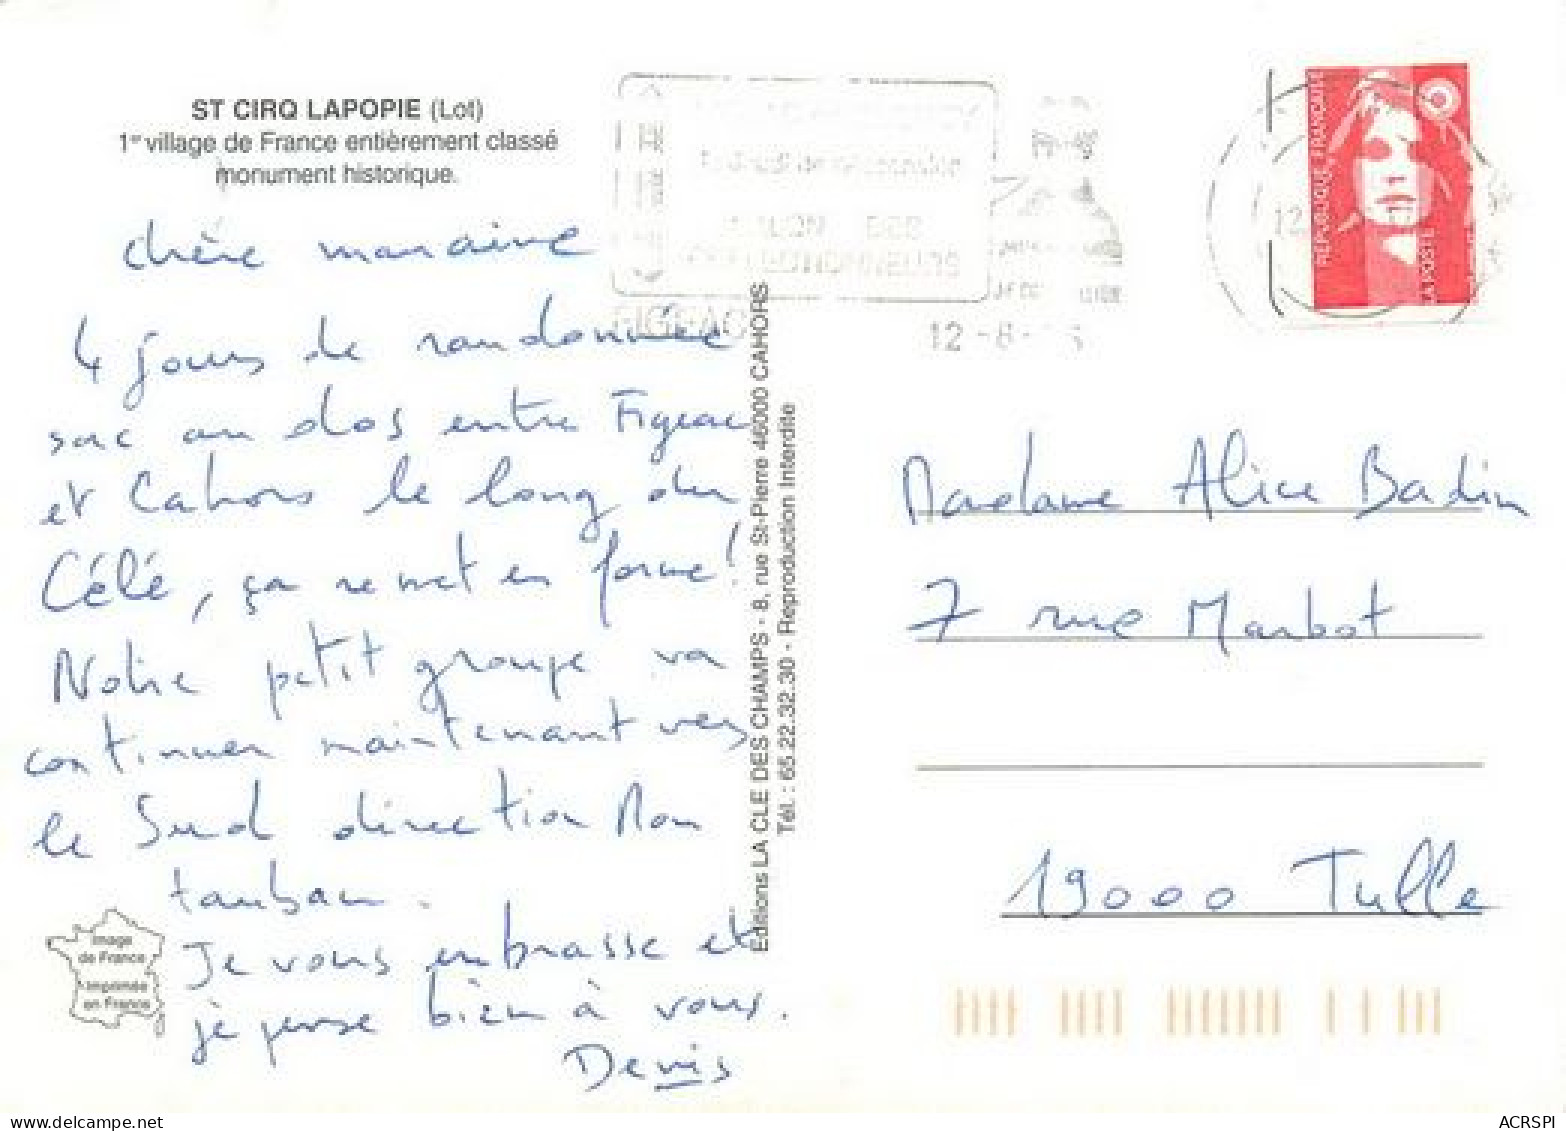 ST CIRQ LAPOPIE (Lot)
1er village de France entièrement classé
monument historique.
chère marraine
4 jours de randonnée
sac au dos entre Figeac
et Cahors le long du
Célé, ça remet en forme!
Notre petit groupe va
continuer maintenant vers
le Sud direction Mon
tauban.
Je vous embrasse et
je pense bien à vous.
Denis
Image
de France
Imprimée
en France
Editions LA CLE DES CHAMPS - 8, rue St-Pierre 46000 CAHORS
Tél. : 65.22.32.30 - Reproduction Interdite
FIGEAC
12 -8-
REPUBLIQUE FRANCAISE
LA POSTE
12
Madame Alice Badin
7 rue Marbot
19000 Tulle
www.delcampe.net
ACRSPI